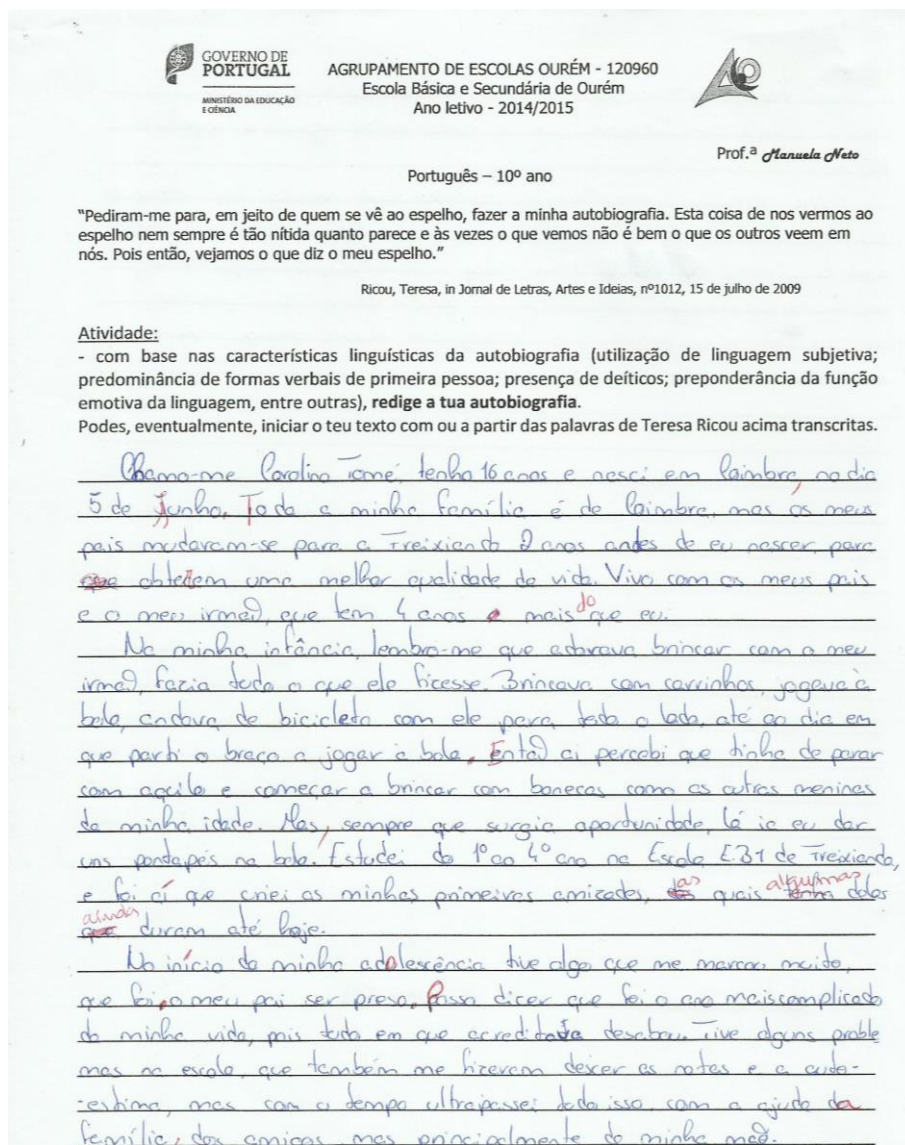 GOVERNO DE
PORTUGAL
MINISTÉRIO DA EDUCAÇÃO
E CIÊNCIA
AGRUPAMENTO DE ESCOLAS OURÉM - 120960
Escola Básica e Secundária de Ourém
Ano letivo - 2014/2015
Prof.ª Manuela Neto
Português – 10º ano
"Pediram-me para, em jeito de quem se vê ao espelho, fazer a minha autobiografia. Esta coisa de nos vermos ao
espelho nem sempre é tão nítida quanto parece e às vezes o que vemos não é bem o que os outros veem em
nós. Pois então, vejamos o que diz o meu espelho."
Ricou, Teresa, in Jornal de Letras, Artes e Ideias, nº1012, 15 de julho de 2009
Atividade:
- com base nas características linguísticas da autobiografia (utilização de linguagem subjetiva;
predominância de formas verbais de primeira pessoa; presença de deíticos; preponderância da função
emotiva da linguagem, entre outras), redige a tua autobiografia.
Podes, eventualmente, iniciar o teu texto com ou a partir das palavras de Teresa Ricou acima transcritas.
Chamo-me Carolina Tomé, tenho 16 anos e nasci em Coimbra, no dia
5 de Junho. Toda a minha família é de Coimbra, mas os meus
pais mudaram-se para a Freixianda 2 anos antes de eu nascer, para
obterem uma melhor qualidade de vida. Vivo com os meus pais
e o meu irmão, que tem 4 anos mais do que eu.
Na minha infância, lembro-me que adorava brincar com o meu
irmão, fazia tudo o que ele fizesse. Brincava com carrinhos, jogava à
bola, andava de bicicleta com ele para todo o lado, até ao dia em
que parti o braço a jogar à bola. Então aí percebi que tinha de parar
com aquilo e começar a brincar com bonecas como as outras meninas
da minha idade. Mas, sempre que surgia oportunidade, lá ia eu dar
uns pontapés na bola. Estudei do 1º ao 4º ano na Escola E.B1 de Freixianda,
e foi aí que criei as minhas primeiras amizades, das quais algumas delas
ainda duram até hoje.
No início da minha adolescência tive algo que me marcou muito,
que foi, o meu pai ser preso. Posso dizer que foi o ano mais complicado
da minha vida, pois tudo em que acreditava desabou. Tive alguns proble
mas na escola, que também me fizeram descer as notas e a auto-
-estima, mas com o tempo ultrapassei todo isso, com a ajuda da
família, dos amigos, mas principalmente da minha mãe.